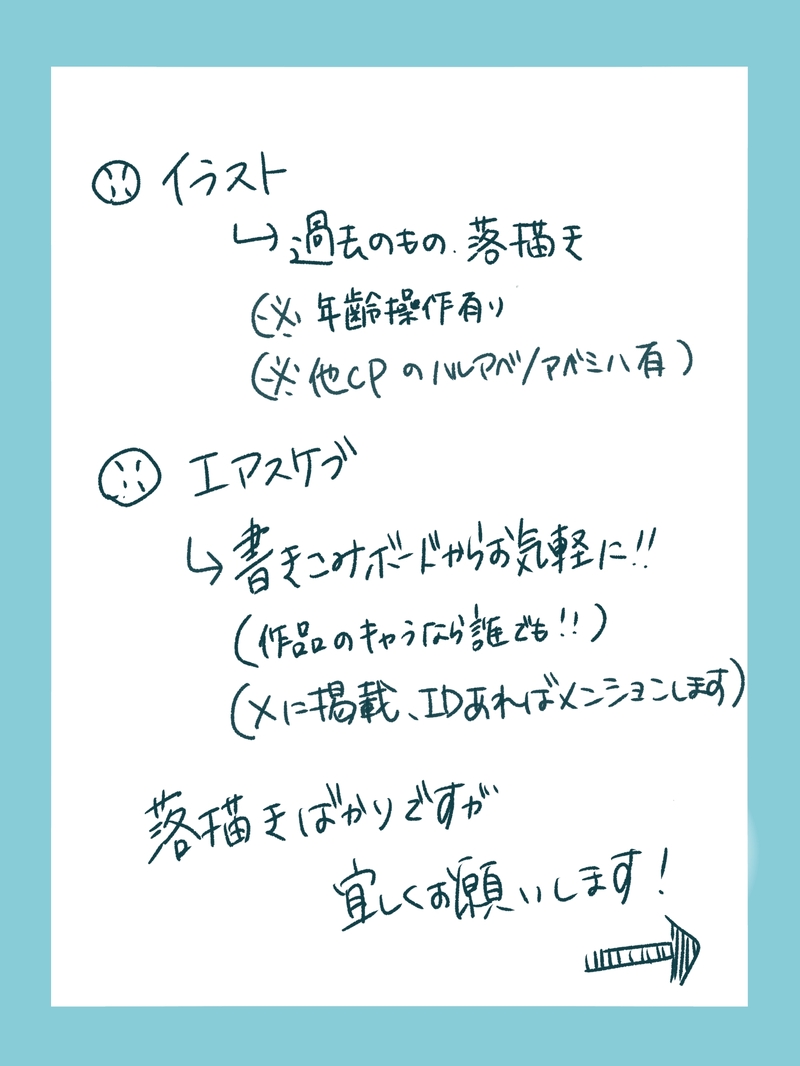 イラスト
↳過去のもの.落描き
(※年齢操作有り
(※他CPのハルアベ/アベミハ有)
エアスケブ
↳書きこみボードからお気軽に!!
(作品のキャラなら誰でも!!)
(Xに掲載、IDあればメンションします)
落描きばかりですが
宜しくお願いします!